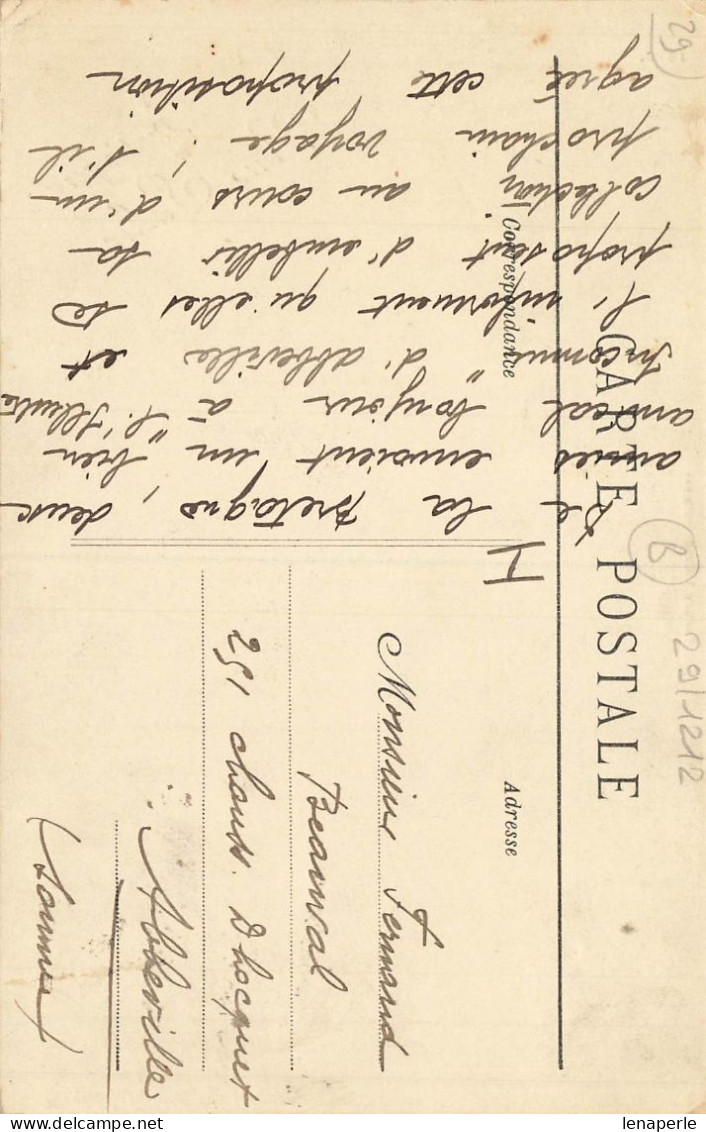 CARTE POSTALE
Correspondance
Adresse
De la Bretagne, deux
amies envoient un bien
amical bonjour à "l'Illustre
Inconnu" d'abbeville et
l'informent qu'elles se
proposent d'embellir sa
colection au cours d'un
prochain voyage, s'il
agrée cette proposition
Monsieur Fernand
Beauval
251 chauss. D'hocquet
Abbeville
(Somme)
H
29
B
29/1212
lenaperle